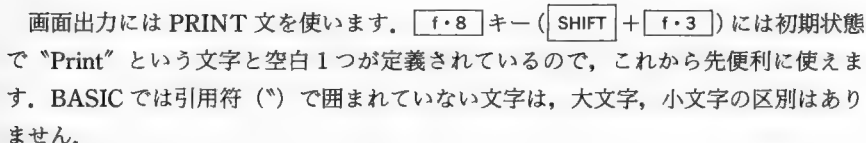 画面出力には PRINT 文を使います． f・8 キー（ SHIFT ＋ f・3 ）には初期状態
で〝Print〞という文字と空白1つが定義されているので，これから先便利に使えま
す．BASIC では引用符（〝）で囲まれていない文字は，大文字，小文字の区別はあり
ません．